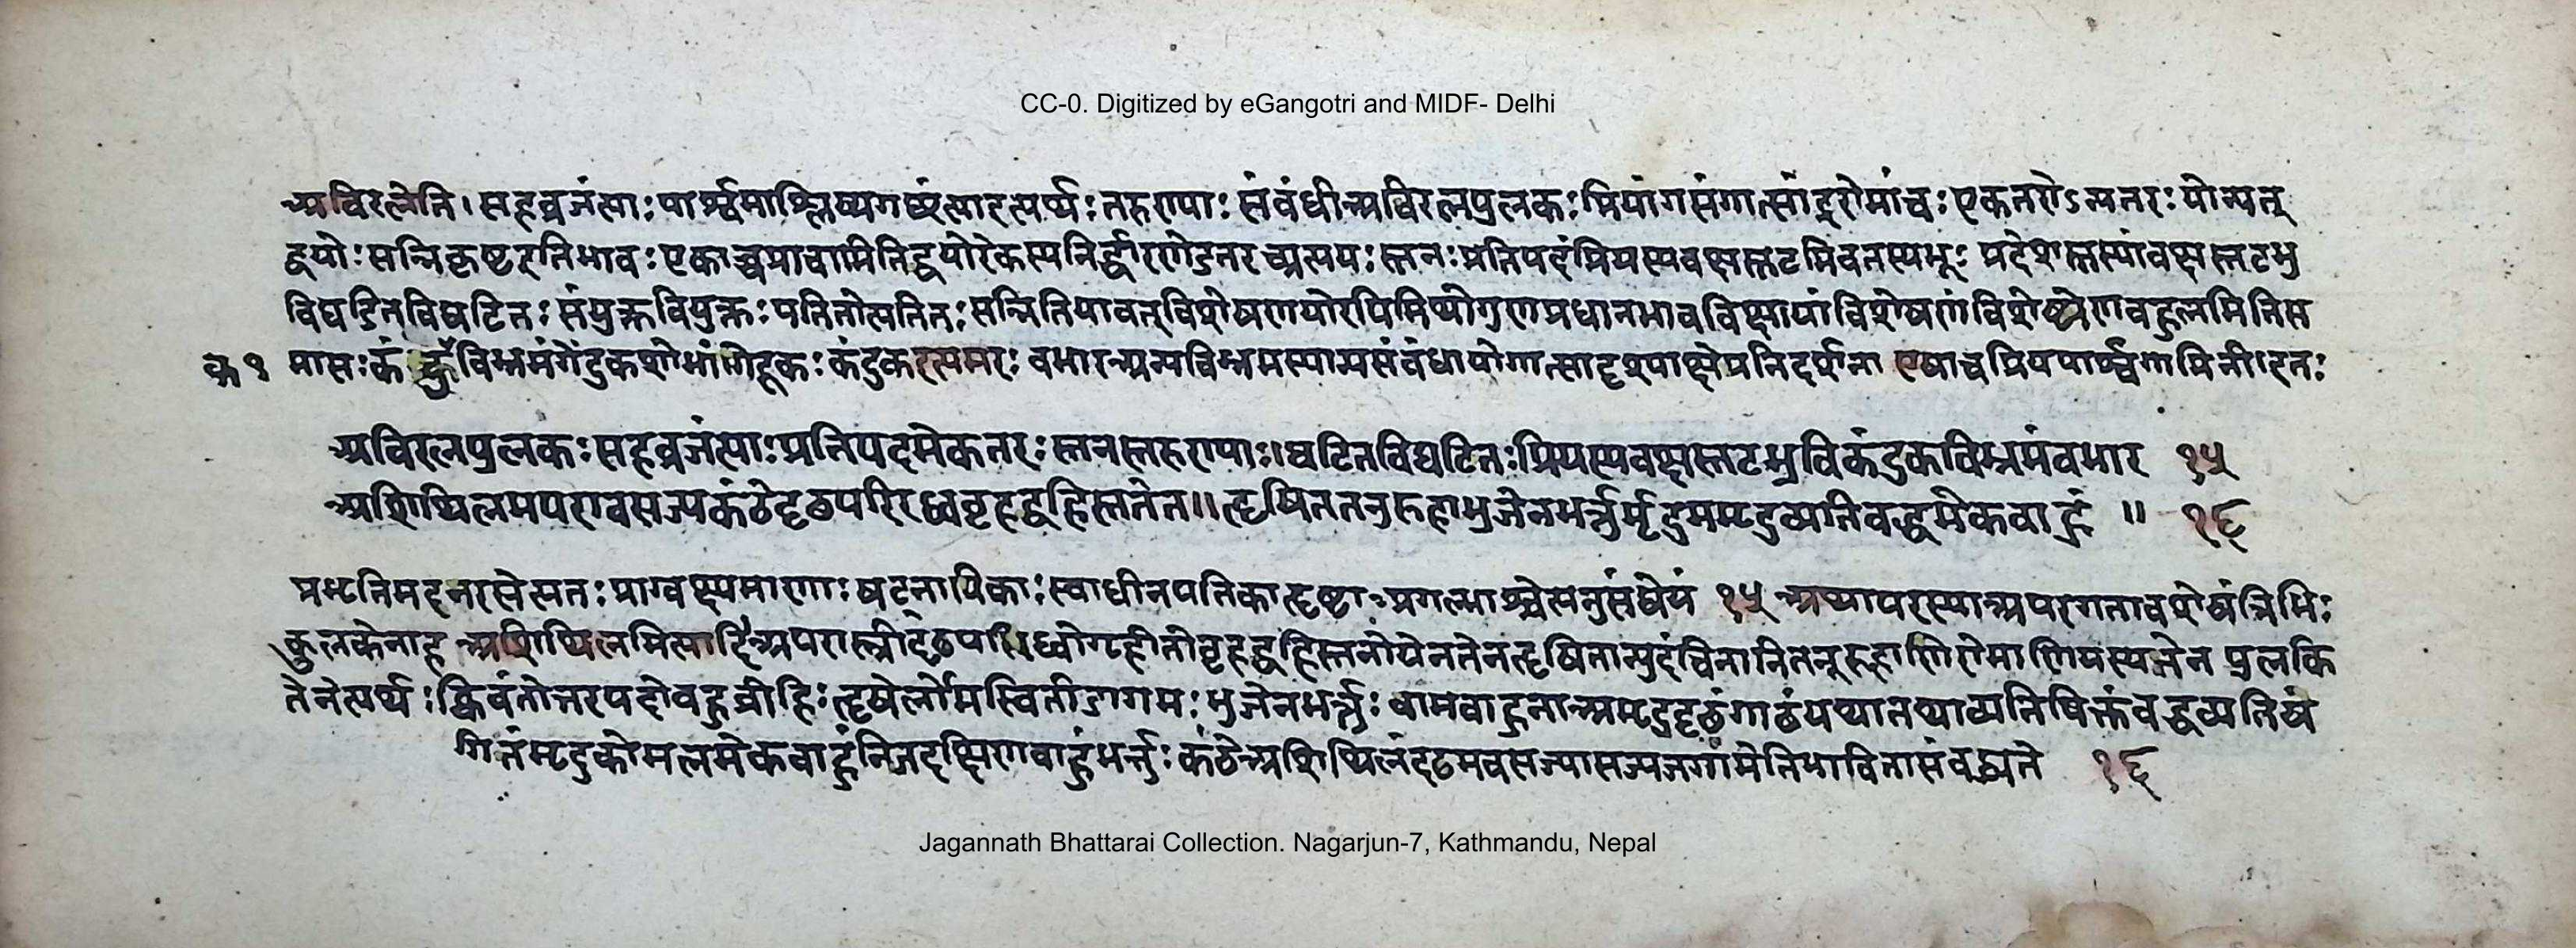 CC-0. Digitized by eGangotri and MIDF- Delhi
अविरलेति । सहव्रजंत्याः पार्श्वमाश्लिष्यगछंत्याइत्यर्थः तरुण्याः संबंधीअविरलपुलकः प्रियांगसंगात्सांद्ररोमांचः एकतरोऽन्यतरः योन्यत्
द्वयोः सन्निकृष्टइतिभावः एकाच्चप्राचामितिद्वयोरेकस्यनिर्द्धारणेडतरच्प्रत्ययः स्तनः प्रतिपदंप्रियस्यवक्षस्तटमिवतस्यभूः प्रदेशस्तस्यांवक्षस्तटभु
विघटितविघटितः संयुक्तवियुक्तः पतितोत्पतितः सन्नितियावत् विशेषणयोरपिमिथोगुणप्रधानभावविक्षायांविशेषणंविशेष्येणबहुलमितिस
क १ मासः कंदुकविभ्रमंगेंदुकशोभांगेंदूकः कंदुकइत्यमरः बभारअन्यविभ्रमस्यान्यसंबंधायोगात्सादृश्याक्षेपनिदर्शना एषाचप्रियपार्श्वगामिनी । इतः
अविरलपुलकः सहव्रजंत्याः प्रतिपदमेकतरः स्तनस्तरुण्याः ॥ घटितविघटितः प्रियस्यवक्षस्तटभुविकंदुकविभ्रमंबभार १५
अशिथिलमपरावसज्यकंठेदृढपरिरब्धबृहद्बहिस्तनेन ॥ हृषिततनुरुहाभुजेनभर्त्तुर्मृदुममृदुव्यतिबद्धमेकबाहुं ॥ १६
प्रभृतिमदनरसेत्यतः प्राग्वक्ष्यमाणाः षट्नायिकाः स्वाधीनपतिकाहृष्टाः प्रगल्भाश्चेत्यनुसंधेयं १५ अथापरस्याअपरगतावशेषंत्रिभिः
कुलकेनाह अशिथिलमित्यादि अपरास्त्रीदृढपरिरब्धोगृहीतोबृहद्बहिस्तनोयेनतेनहृषितान्युदंचितानितनूरुहाणिरोमाणियस्यतेन पुलकि
तेनेत्यर्थः क्विबंतोत्तरपदोबहुव्रीहिः हृषेर्लोमस्वितीडागमः भुजेनभर्त्तुः वामबाहुनाअमृदुदृढंगाढंयथातथाव्यतिषिक्तंबद्धव्यतिषं
गितंमृदुकोमलमेकबाहुंनिजदक्षिणबाहुंभर्त्तुः कंठेअशिथिलंदृढमवसज्यासज्यजगामेतिभावितासंबध्यते १६
Jagannath Bhattarai Collection. Nagarjun-7, Kathmandu, Nepal